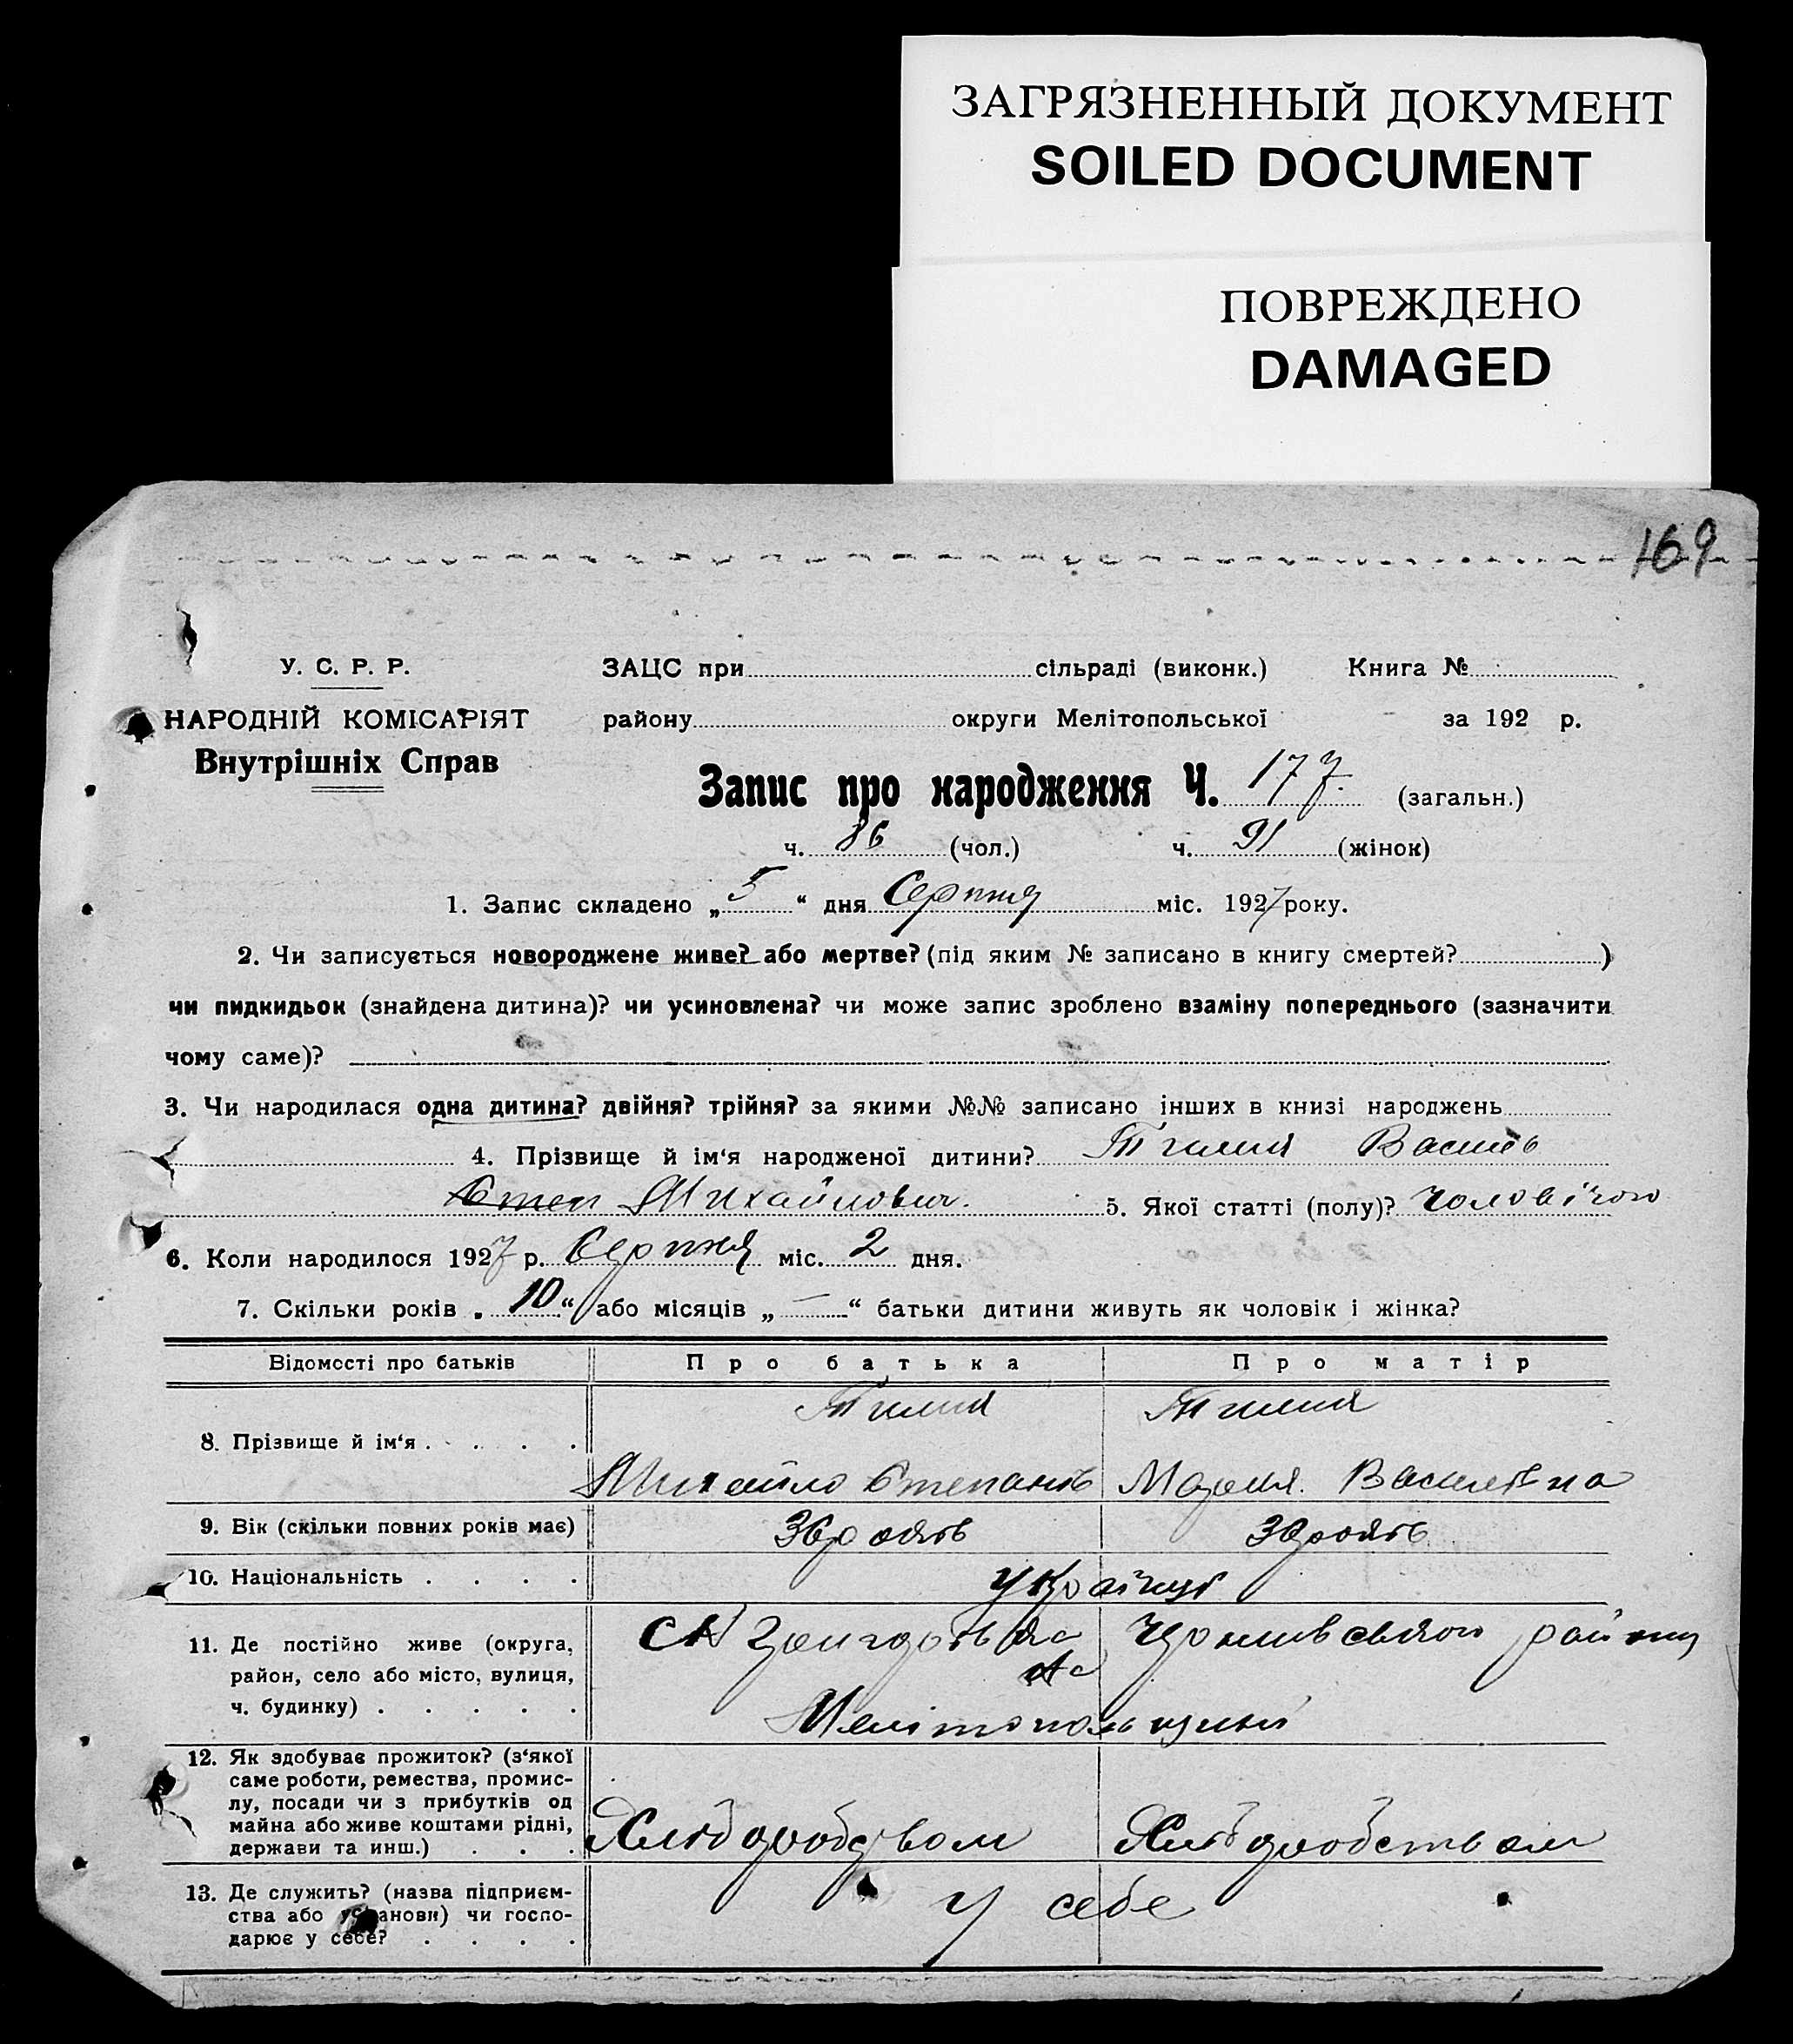 ЗАГРЯЗНЕННЫЙ ДОКУМЕНТ
SOILED DOCUMENT
ПОВРЕЖДЕНО
DAMAGED
169
У. С. Р. Р.
НАРОДНІЙ КОМІСАРІЯТ
Внутрішніх Справ
ЗАЦС при сільраді (виконк.) Книга №
району округи Мелітопольської за 192 р.
Запис про народження Ч. 177. (загальн.)
ч. 86 (чол.) ч. 91 (жінок)
1. Запис складено „5“ дня Серпня міс. 1927 року.
2. Чи записується новороджене живе? або мертве? (під яким № записано в книгу смертей? )
чи пидкидьок (знайдена дитина)? чи усиновлена? чи може запис зроблено взаміну попереднього (зазначити
чому саме)?
3. Чи народилася одна дитина? двійня? трійня? за якими №№ записано інших в книзі народжень
4. Прізвище й ім‘я народженої дитини? Василь
Степ Михайлович. 5. Якої статті (полу)? Чоловічої
6. Коли народилося 1927 р. Серпня міс. 2 дня.
7. Скільки років „10“ або місяців „—“ батьки дитини живуть як чоловік і жінка?
Відомості про батьків Про батька Про матір
8. Прізвище й ім‘я
Михайло Степанов Мария Василевна
9. Вік (скільки повних років має)
10. Національність українці
11. Де постійно живе (округа,
район, село або місто, вулиця,
ч. будинку)
району
Мелітопольщини
12. Як здобуває прожиток? (з‘якої
саме роботи, ремества, промис-
лу, посади чи з прибутків од
майна або живе коштами рідні,
держави та инш.)
Хліборобством Хліборобством
13. Де служить? (назва підприєм-
ства або установи) чи госпо-
дарює у себе?
у себе